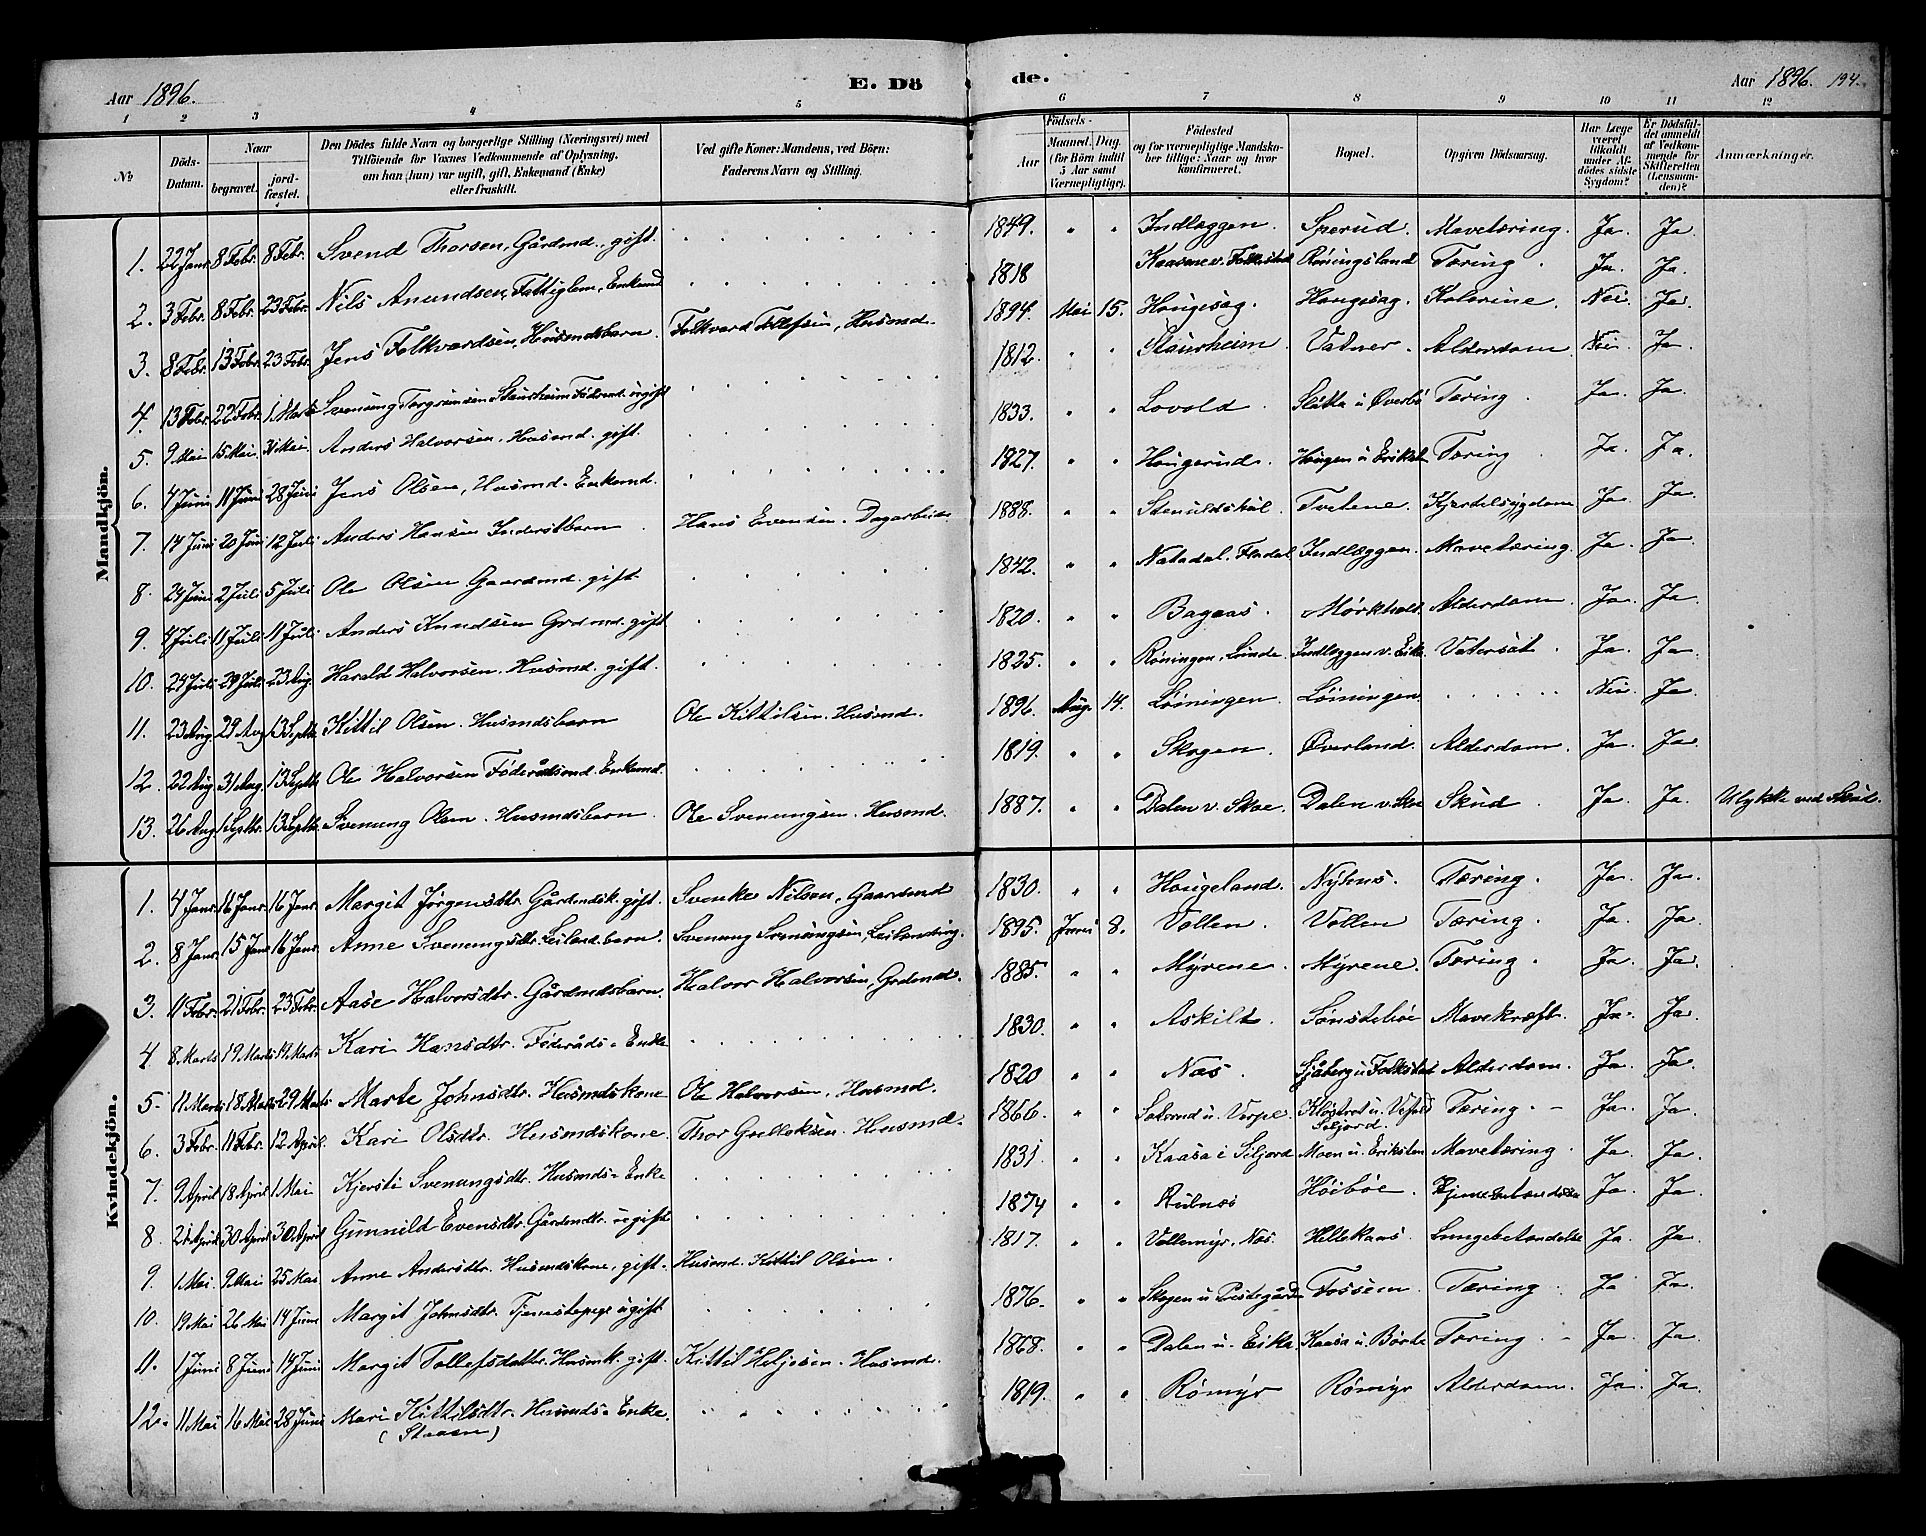 Aar 1896. E. Dö de. Aar 1896. 194.
1 2 3 4 5 6 7 8 9 10 11 12
No Döds-Datum. Naar begravet. jord-fæstet. Den Dödes fulde Navn og borgerlige Stilling (Næringsvei) med Tilföiende for Voxnes Vedkommende af Oplysning, om han (hun) var ugift, gift, Enkemand (Enke) eller fraskilt. Ved gifte Koner: Mandens, ved Börn: Faderens Navn og Stilling. Födsels- Aar Maaned. Dag. (for Börn indtil 5 Aar samt Værnepligtige). Födested og for værnepligtige Mandska-ber tillige: Naar og hvor konfirmeret. Bopæl. Opgiven Dödsaarsag. Har Læge været tilkaldt under Af-dödes sidste Sygdom? Er Dödsfal-det anmeldt af Vedkom-mende for Skifteretten (Lensman-den)? Anmærkninger.
Mandkjön.
1. 22 Janr. 8 Febr. 8 Febr. Svend Thorsen, Gårdmd., gift. 1849. " " Indlæggen. Sperud. Mavetæring. Ja. Ja.
2. 3 Febr. 8 Febr. 23 Febr. Nils Anundsen, Fattiglem, Enkmd 1818 Kaasene v. Folkestad Röningsland Tæring. Ja. Ja.
3. 8 Febr. 13 Febr. 23 Febr. Jens Folkvardsen, Husmdsbarn. Folkvard Tollefsen, Husmd. 1894. Mai 15. Hougesag. Hougesag. Kolerine. Nei. Ja.
4. 13 Febr. 22 Febr. 1 Marts Svenung Torgrimsen Staurheim Föderd. ugift 1812. " " Staurheim Vatner. Alderdom. Nei. Ja.
5. 9 Mai 15 Mai. 31 Mai. Anders Halvorsen. Husmd. gift. 1833. " " Lovold. Slåtta u. Øverbö Tæring. Ja. Ja.
6. 4 Juni 11 Juni 28 Juni Jens Olsen, Husmd. Enkemd. 1827. " " Hougerud. Hougen u. Erikst. Tæring Ja. Ja.
7. 14 Juni 20 Juni 12 Juli Anders Hansen Inderstbarn Hans Evensen. Dagarbeid. 1888. " " Stenuldshül. Tvetene. Kjertelsygdom Ja. Ja.
8. 24 Juni 2 Juli 5 Juli Ole Olsen Gaardmd. gift. 1842. " " Natadal. Flådal. Indlæggen. Mavetæring. Ja. Ja.
9. 4 Juli 11 Juli 11 Juli Anders Knudsen Grdmd. gift 1820. " " Bagaas. Mörkholt. Alderdom. Ja. Ja.
10. 24 Juli 29 Juli 23 Aug. Harald Halvorsen. Husmd. gift. 1825. " " Röningen, Lunde. Indlæggen v. Eika. Vatersot. Ja. Ja.
11. 23 Aug. 29 Aug 13 Septb. Kittil Olsen. Husmdsbarn Ole Kittilsen. Husmd. 1896. Aug. 14. Löiningen. Löiningen. Nei. Ja.
12. 22 Aug. 31 Aug. 13 Septb. Ole Halvorsen Föderådsmd. Enkemd. 1819. " " Skogen. Øverland. Alderdom. Ja. Ja.
13. 26 Aug 1 Septbr. 13 Septb. Svenung Olsen. Husmdsbarn. Ole Svenungsen. Husmd. 1887. " " Dalen v. Skoe. Dalen v. Skoe Skud. Ja. Ja. Ulykke ved Skud.
Kvindekjön.
1. 4 Janr. 16 Janr. 16 Janr. Margit Jørgensdtr. Gårdmdsk. gift. Svenke Nilsen, Gaardmd 1830. " " Hougeland. Nyhus. Tæring. Ja. Ja.
2. 8 Janr. 15 Janr 16 Janr. Anne Svenungsdtr. Leiland.barn. Svenung Svenungsen, Leilending. 1895. Juni 8. Vollen. Vollen Tæring. Ja. Ja
3. 11 Febr. 21 Febr. 23 Febr. Aase Halvorsdtr. Gårdmdsbarn. Halvor Halvorsen, Grdmd. 1885. " " Myrene. Myrene. Tæring. Ja. Ja.
4 8 Marts 19 Marts 19 Marts Kari Hansdtr. Föderåds-Enke 1830. " " Askilt. Sönstebøe Mavekræft. Ja. Ja.
5. 11 Marts 18 Marts 29 Marts Marte Johnsdtr. Husmdskone Ole Halvorsen, Husmd. 1820 " " Næs. Sjåberg u. Folkestad Alderdom. Ja. Ja.
6. 3 Febr. 11 Febr. 12 April. Kari Olsdtr. Husmdskone. Thor Gulleksen. Husmd. 1866. " " u. Verpe Seljord. Tæring. Ja. Ja.
7. 9 April 18 April 1 Mai Kjersti Svenungsdtr. Husmds-Enke 1831. " " Kaasa i Siljord Moen u. Eriksten Mavetæring. Ja. Ja.
8. 21 April 30 April 30 April Gunnild Evensdtr. Gårdmdtr. ugift 1874 " " Rübnæs Höibøe. Ja. Ja.
9. 1 Mai. 9 Mai 25 Mai Anne Andersdtr. Husmdskone, gift. Husmd. Kittil Olsen. 1817. " " Vollemyr, Næs. Hellekaas. Lungebetændelse Ja. Ja
10. 19 Mai 26 Mai 14 Juni Margit Johnsdtr. Tjenestepige ugift 1876. " " Skogen u. Prestegården Fossem. Tæring Ja Ja.
11. 1 Juni 8 Juni 14 Juni Margit Tollefsdatter. Husmk. gift. Kittil Heljesen. Husmd. 1868. " " Dalen u. Eika. Kaasa u. Börte Tæring. Ja. Ja
12. 11 Mai 16 Mai 28 Juni Mari Kittilsdtr. Husmds-Enke. 1819. " " Römyr Römyr Alderdom. Ja. Ja.
(Staasen)